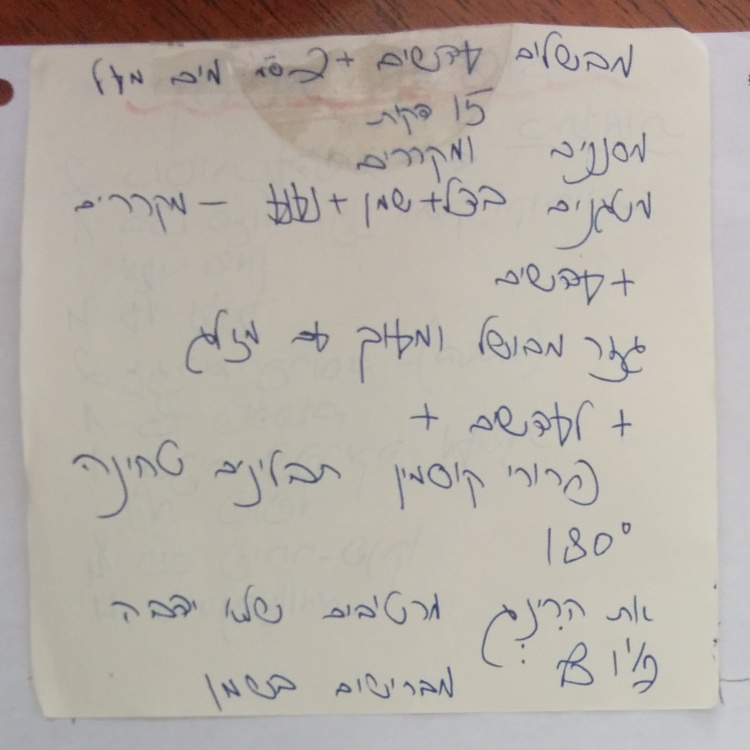 מבשלים עדשים + מים מעל
15 דקות
מסננים ומקררים
מטגנים בצל + שמן + – מקררים
+ עדשים
גזר מבושל ומעוך עם מזלג
+ לעדשים +
פרורי קוסמין תבלינים טחינה
180°
את הרינג מרטיבים שלא ידבק
מברישים בשמן